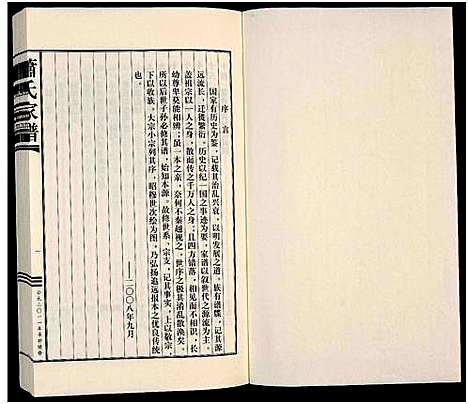 序言
国家有历史为鉴，记载其治乱兴衰，以明发展之道。族有谱牒，记其源
远流长，迁徙繁衍。历史以纪一国之事迹为要，家谱以叙世代之源流为主。
盖祖宗以一人之身，散而传之千万人之身；且四方错落，相见而不相识，长
幼尊卑莫能相辨；虽一本之亲，奈何不秦越视之，世序之极其清乱散涣矣。
所以后世子孙必修其谱，始知本源。故修世系，宗支，记其事实，上以敬宗，
下以收族。大宗小宗列其序，昭穆世次绘为图，乃弘扬追远报本之优良传统
也。
——二〇〇八年九月
萧氏家谱
一